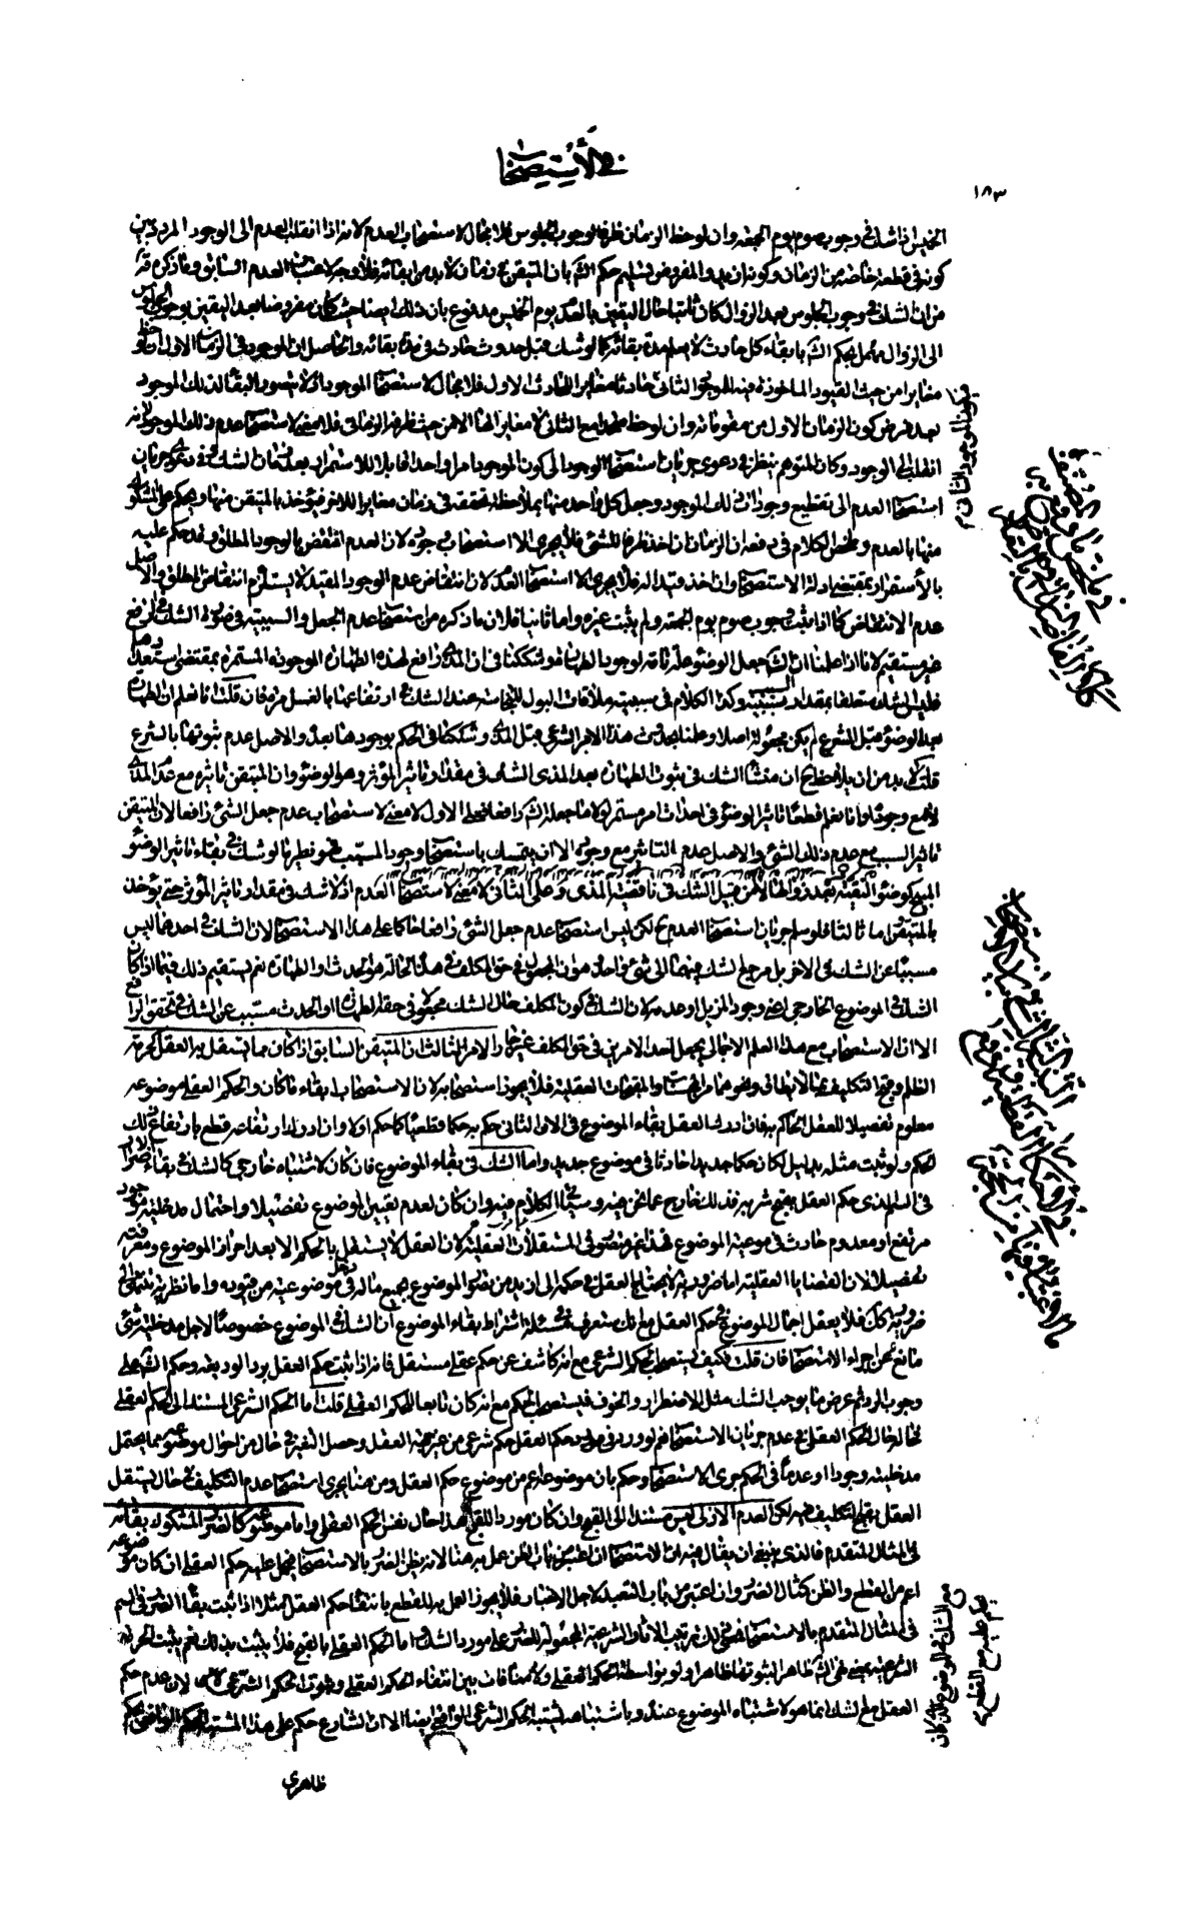 في الأستصحاب
١٨٣
الخميس اذا شك في وجوب صوم يوم الجمعة وان لوحظ الزمان ظرفا لوجوب الجلوس فلا مجال لاستصحاب العدم لانه اذا انقلب العدم الى الوجود المردد بين
كونه في قطعة خاصة من الزمان وكونه ازيد والمفروض تسليم حكم الشارع بان المتيقن في زمان لا بد من ابقائه فلا وجه لاعتبار العدم السابق وما ذكره قده
من ان الشك في وجوب الجلوس بعد الزوال كان ثابتا حال اليقين بالعدم يوم الخميس مدفوع بان ذلك ايضا حيث كان مفروضا بعد اليقين بوجوب الجلوس
الى الزوال مهمل بحكم الشارع بابقاء كل حادث لا يعلم مدة بقائه كما لو شك قبل حدوث حادث في مدة بقائه والحاصل ان الموجود في الزمان الاول ان لوحظ
مغايرا من حيث القيود المأخوذة فيه للموجود الثاني حادثا مغايرا للحادث الاول فلا مجال لاستصحاب الموجود اذ لا يتصور البقاء لذلك الموجود
بعد فرض كون الزمان الاول من مقوماته وان لوحظ متحدا مع الثاني لا مغايرا له الا من حيث ظرفه الزماني فلا معنى لاستصحاب عدم ذلك الموجود لانه
انقلب الى الوجود وكان المتوهم ينظر في دعوى جريان استصحاب الوجود الى كون الموجود امرا واحدا قابلا للاستمرار بعد زمان الشك وفي دعوى جريان
استصحاب العدم الى تقطيع وجودات ذلك الموجود وجعل كل واحد منها بملاحظة تحققه في زمان مغايرا للاخر فيؤخذ بالمتيقن منها ويحكم على المشكوك
منها بالعدم وملخص الكلام في دفعه ان الزمان ان اخذ ظرفا للشئ فلا يجرى الا استصحاب وجوده لان العدم انتقض بالوجود المطلق وقد حكم عليه
بالأستمرار بمقتضى ادلة الاستصحاب وان اخذ قيدا له فلا يجرى الا استصحاب العدم لان انتقاض عدم الوجود المقيد لا يستلزم انتقاض المطلق والاصل
عدم الانتقاض كما اذا ثبت وجوب صوم يوم الجمعة ولم يثبت غيره واما ثانيا فلان ما ذكره من استصحاب عدم الجعل والسببية في صورة الشك في الرافع
غير مستقيم لانا اذا علمنا ان الشارع جعل الوضوء علة تامة لوجود الطهارة وشككنا في ان المذى رافع لهذه الطهارة الموجودة المستمرة بمقتضى استعدادها
فليس الشك متعلقا بمقدار سببية السبب وكذا الكلام في سببية ملاقات البول للنجاسة عند الشك في ارتفاعها بالغسل مرة فان قلت انا نعلم ان الطهارة
بعد الوضوء قبل الشرع لم يكن مجعولة اصلا وعلمنا بحدوث هذا الامر الشرعي قبل المذى وشككنا في الحكم بوجودها بعده والاصل عدم ثبوتها بالشرع
قلت لا بد من ان يلاحظ ح ان منشأ الشك في ثبوت الطهارة بعد المذى الشك في مقدار تاثير المؤثر وهو الوضوء وان المتيقن تاثيره مع عدم المذى
لا مع وجوده او انا نعلم قطعا تاثير الوضوء في احداث امر مستمر لولا ما جعله الشارع رافعا فعلى الاول لا معنى لاستصحاب عدم جعل الشئ رافعا لان المتيقن
تاثير السبب مع عدم ذلك الشئ والاصل عدم التاثير مع وجوده الا ان يتمسك باستصحاب وجود المسبب فهو نظير ما لو شك في بقاء تاثير الوضوء
المبيح كوضوء التقية بعد زوالها لا من قبيل الشك في ناقضية المذى وعلى الثاني لا معنى لاستصحاب العدم اذ لا شك في مقدار تاثير المؤثر حتى يؤخذ
بالمتيقن واما ثالثا فلو سلم جريان استصحاب العدم ح لكن ليس استصحاب عدم جعل الشئ رافعا حاكما على هذا الاستصحاب لان الشك في احدهما ليس
مسببا عن الشك في الاخر بل مرجع الشك فيهما الى شئ واحد وهو ان المجعول في حق المكلف في هذه الحالة هو الحدث او الطهارة نعم يستقيم ذلك فيما اذا كان
الشك في الموضوع الخارجي اعنى وجود المزيل وعدمه لان الشك في كون المكلف حال الشك مجعولا في حقه الطهارة او الحدث مسبب عن الشك في تحقق الرافع
الا ان الاستصحاب مع هذا العلم الاجمالي بجعل احد الامرين في حق المكلف غير جار الامر الثالث ان المتيقن السابق اذا كان مما يستقل به العقل كحرمة
الظلم وقبح التكليف بما لا يطاق ونحوهما من المحسنات والمقبحات العقلية فلا يجوز استصحابه لان الاستصحاب ابقاء ما كان والحكم العقلي موضوعه
معلوم تفصيلا للعقل الحاكم به فان ادرك العقل بقاء الموضوع في الان الثاني حكم به حكما قطعيا كما حكم اولا وان ادرك ارتفاعه قطع بارتفاع ذلك
الحكم ولو ثبت مثله بدليل لكان حكما جديدا حادثا في موضوع جديد واما الشك في بقاء الموضوع فان كان لاشتباه خارجي كالشك في بقاء الاضرار
في السم الذى حكم العقل بقبح شربه فذلك خارج عما نحن فيه وسيأتي الكلام فيه وان كان لعدم تعيين الموضوع تفصيلا واحتمال مدخلية موجود
مرتفع او معدوم حادث في موضوعية الموضوع فهذا غير متصور في المستقلات العقلية لان العقل لا يستقل بالحكم الا بعد احراز الموضوع ومعرفته
تفصيلا لان القضايا العقلية اما ضرورية لا يحتاج العقل في حكمه الى ازيد من تصور الموضوع بجميع ما له دخل في موضوعيته من قيوده واما نظرية تنتهى الى
ضرورية كك فلا يعقل اجمال الموضوع في حكم العقل مع انك ستعرف في مسئلة اشتراط بقاء الموضوع ان الشك في الموضوع خصوصا لاجل مدخلية شئ
مانع عن اجراء الاستصحاب فان قلت فكيف يستصحب الحكم الشرعي مع انه كاشف عن حكم عقلي مستقل فانه اذا ثبت حكم العقل برد الوديعة وحكم الشارع على
وجوب الرد ثم عرض ما يوجب الشك مثل الاضطرار والخوف فيستصحب الحكم مع انه كان تابعا للحكم العقلي قلت اما الحكم الشرعي المستند الى الحكم العقلي
فحاله حال الحكم العقلي في عدم جريان الاستصحاب نعم لو ورد في مورد حكم العقل حكم شرعي من غير جهة العقل وحصل التغير في حال من احوال موضوعه مما يحتمل
مدخليته وجودا او عدما في الحكم جرى الاستصحاب وحكم بان موضوعه اعم من موضوع حكم العقل ومن هنا يجرى استصحاب عدم التكليف في حال يستقل
العقل بقبح التكليف فيه لكن العدم الازلى ليس مستندا الى القبح وان كان موردا للقبح هذا حال نفس الحكم العقلي واما موضوعه كالضرر المشكوك بقائه
في المثال المتقدم فالذى ينبغى ان يقال فيه ان الاستصحاب ان اعتبر من باب الظن عمل به هنا لانه يظن الضرر بالاستصحاب فيحمل عليه حكم العقل ان كان موضوعه
اعم من القطع والظن كمثال الضرر وان اعتبر من باب التعبد لاجل الاخبار فلا يجوز العمل به للقطع بانتفاء حكم العقل مثلا اذا ثبت بقاء الضرر في السم
في المثال المتقدم بالاستصحاب فمعنى ذلك ترتيب الاثار الشرعية المجعولة للضرر على مورد الشك واما الحكم العقلي بالقبح فلا يثبت بذلك نعم يثبت الحرمة
الشرعية بمعنى نهى الشارع ظاهرا لثبوتها سابقا ولو بواسطة الحكم العقلي ولا منافات بين انتفاء الحكم العقلي وثبوت الحكم الشرعي لان عدم حكم
العقل مع الشك انما هو لاشتباه الموضوع عنده وباشتباهه يشتبه الحكم الشرعي الواقعي ايضا الا ان الشارع حكم على هذا المشتبه الحكم الواقعي بحكم
ظاهرى
فيكون الموجود الثاني